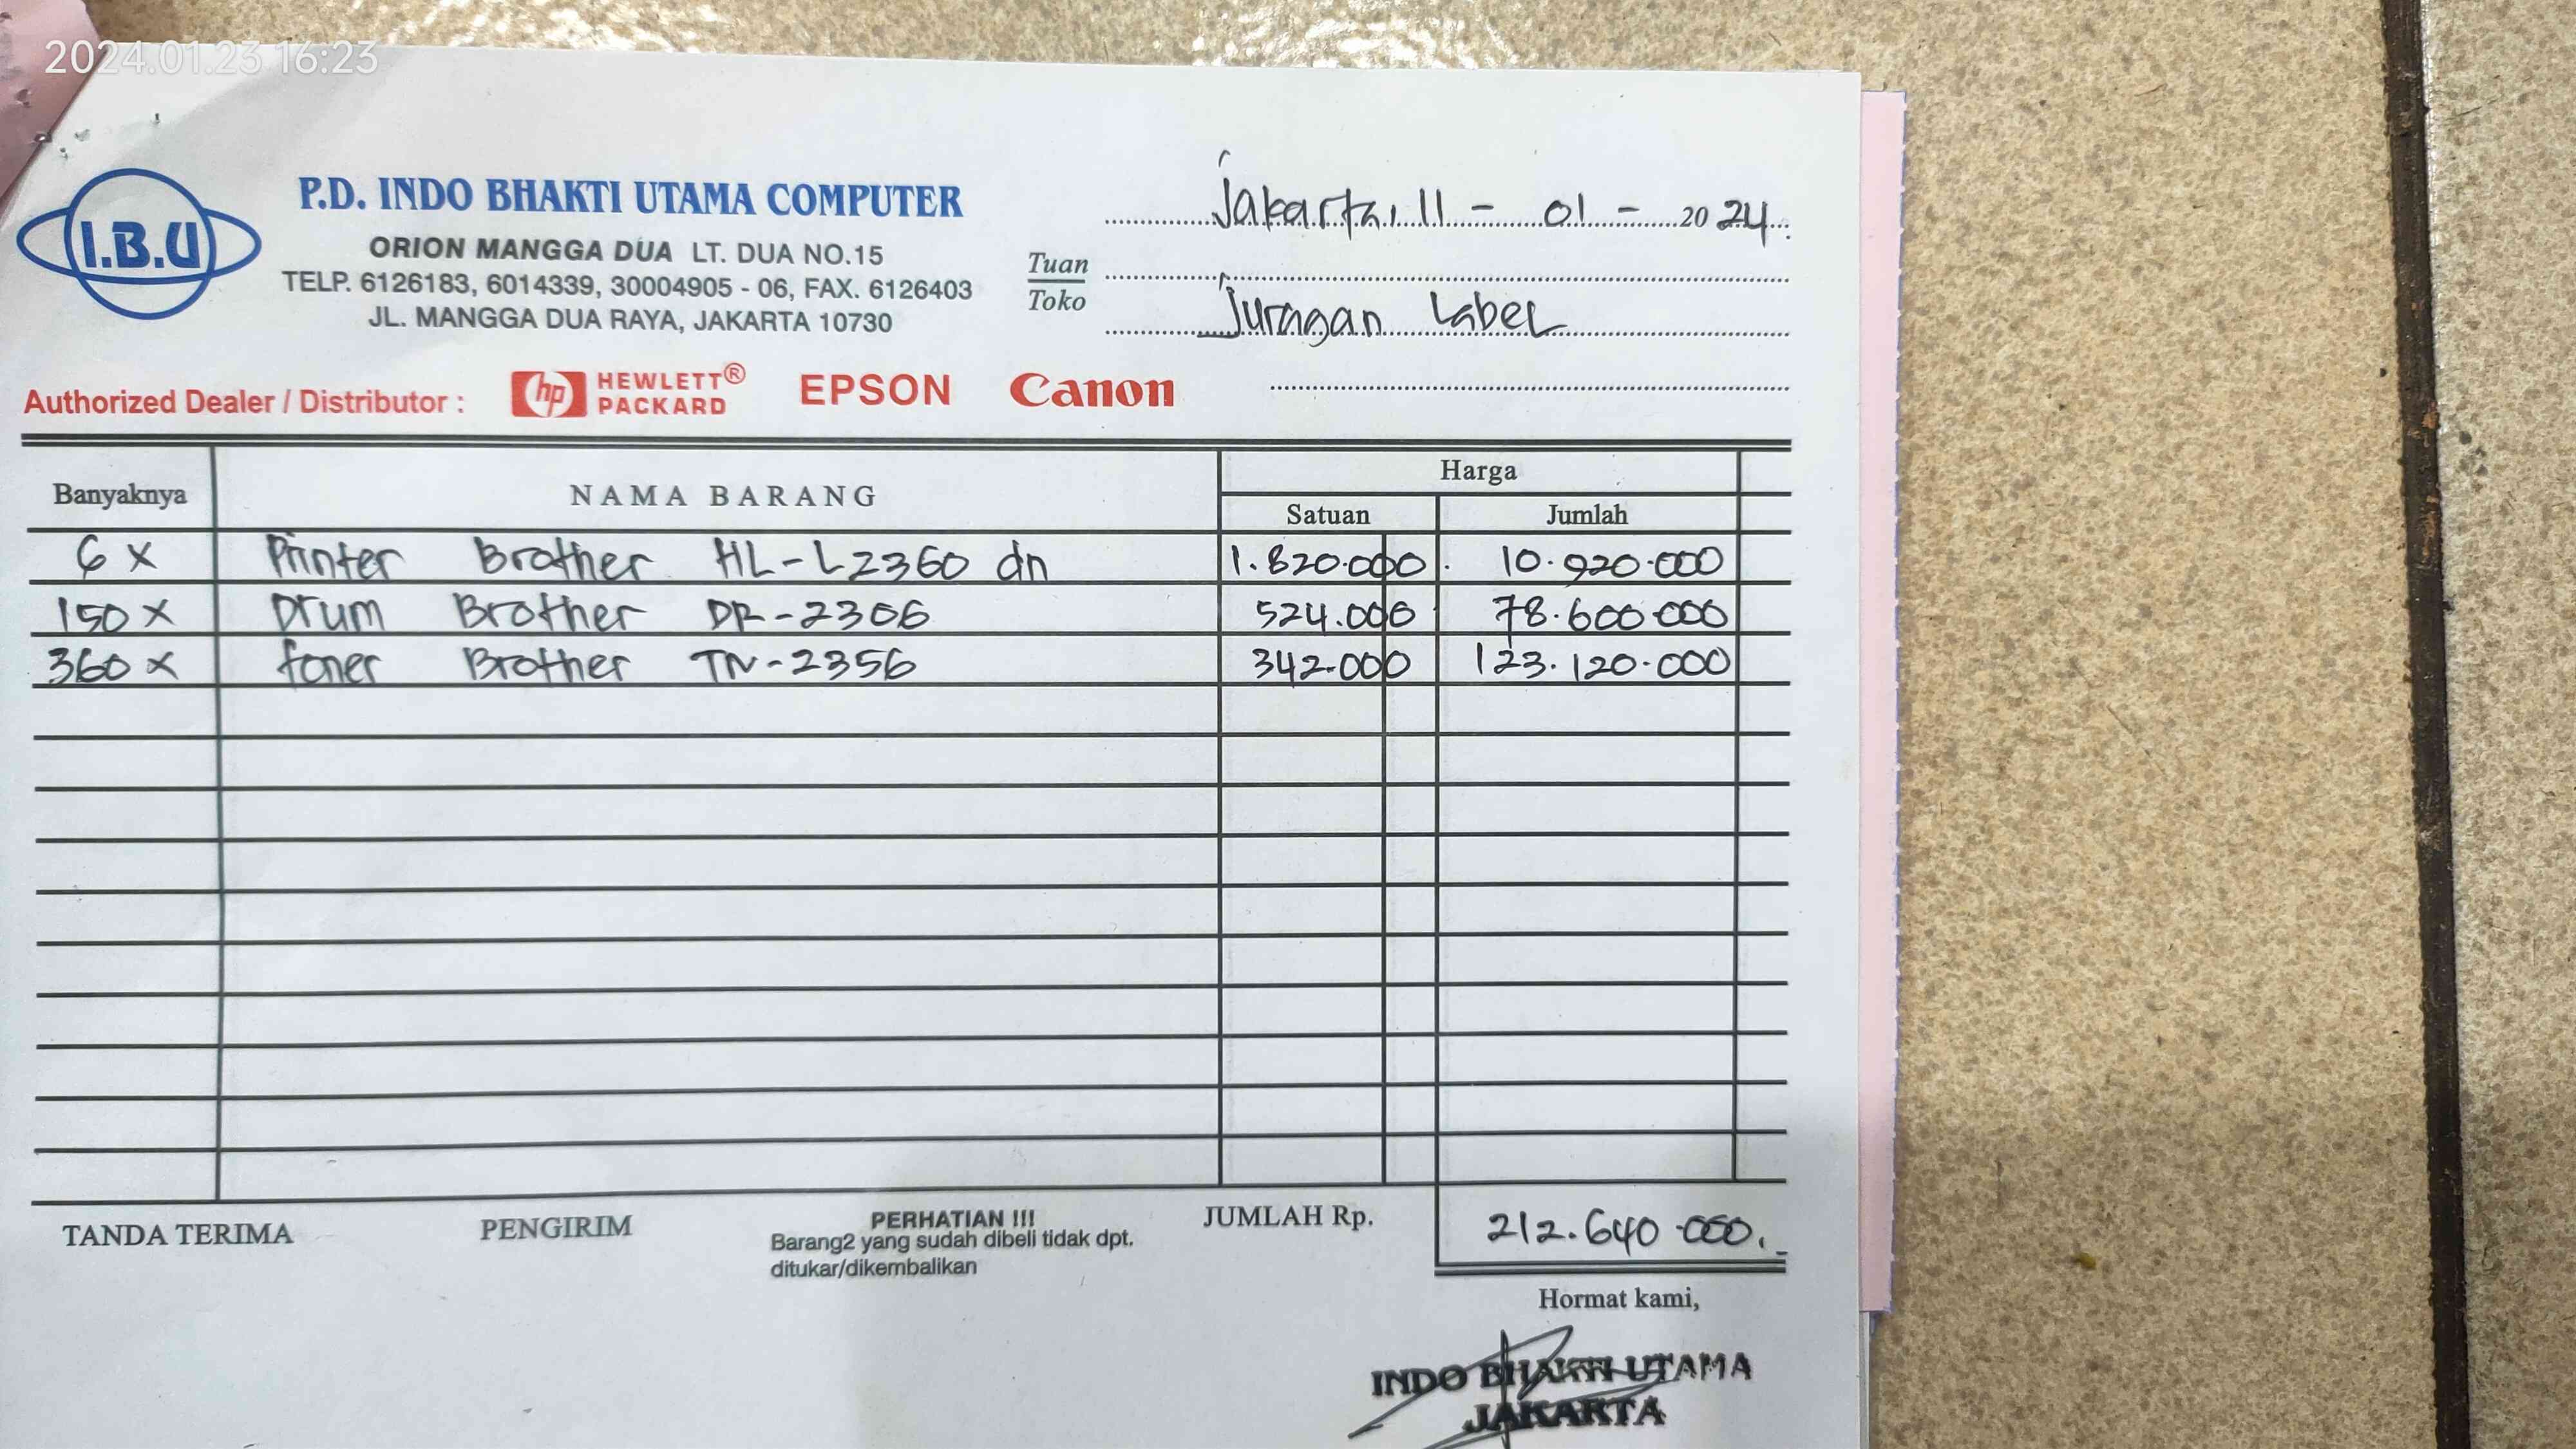 2024.01.23 16:23
I.B.U
P.D. INDO BHAKTI UTAMA COMPUTER
ORION MANGGA DUA LT. DUA NO.15
TELP. 6126183, 6014339, 30004905 - 06, FAX. 6126403
JL. MANGGA DUA RAYA, JAKARTA 10730
Jakarta, 11 - 01 - 2024
Tuan
Toko
Juragan Label
Authorized Dealer / Distributor : hp HEWLETT® PACKARD EPSON Canon
Banyaknya NAMA BARANG Harga
Satuan Jumlah
6 x Printer Brother HL-L2360 dn 1.820.000 10.920.000
150 x Drum Brother DR-2306 524.000 78.600.000
360 x Toner Brother TN-2356 342.000 123.120.000
TANDA TERIMA PENGIRIM PERHATIAN !!! JUMLAH Rp. 212.640.000.-
Barang2 yang sudah dibeli tidak dpt.
ditukar/dikembalikan
Hormat kami,
INDO BHAKTI UTAMA
JAKARTA